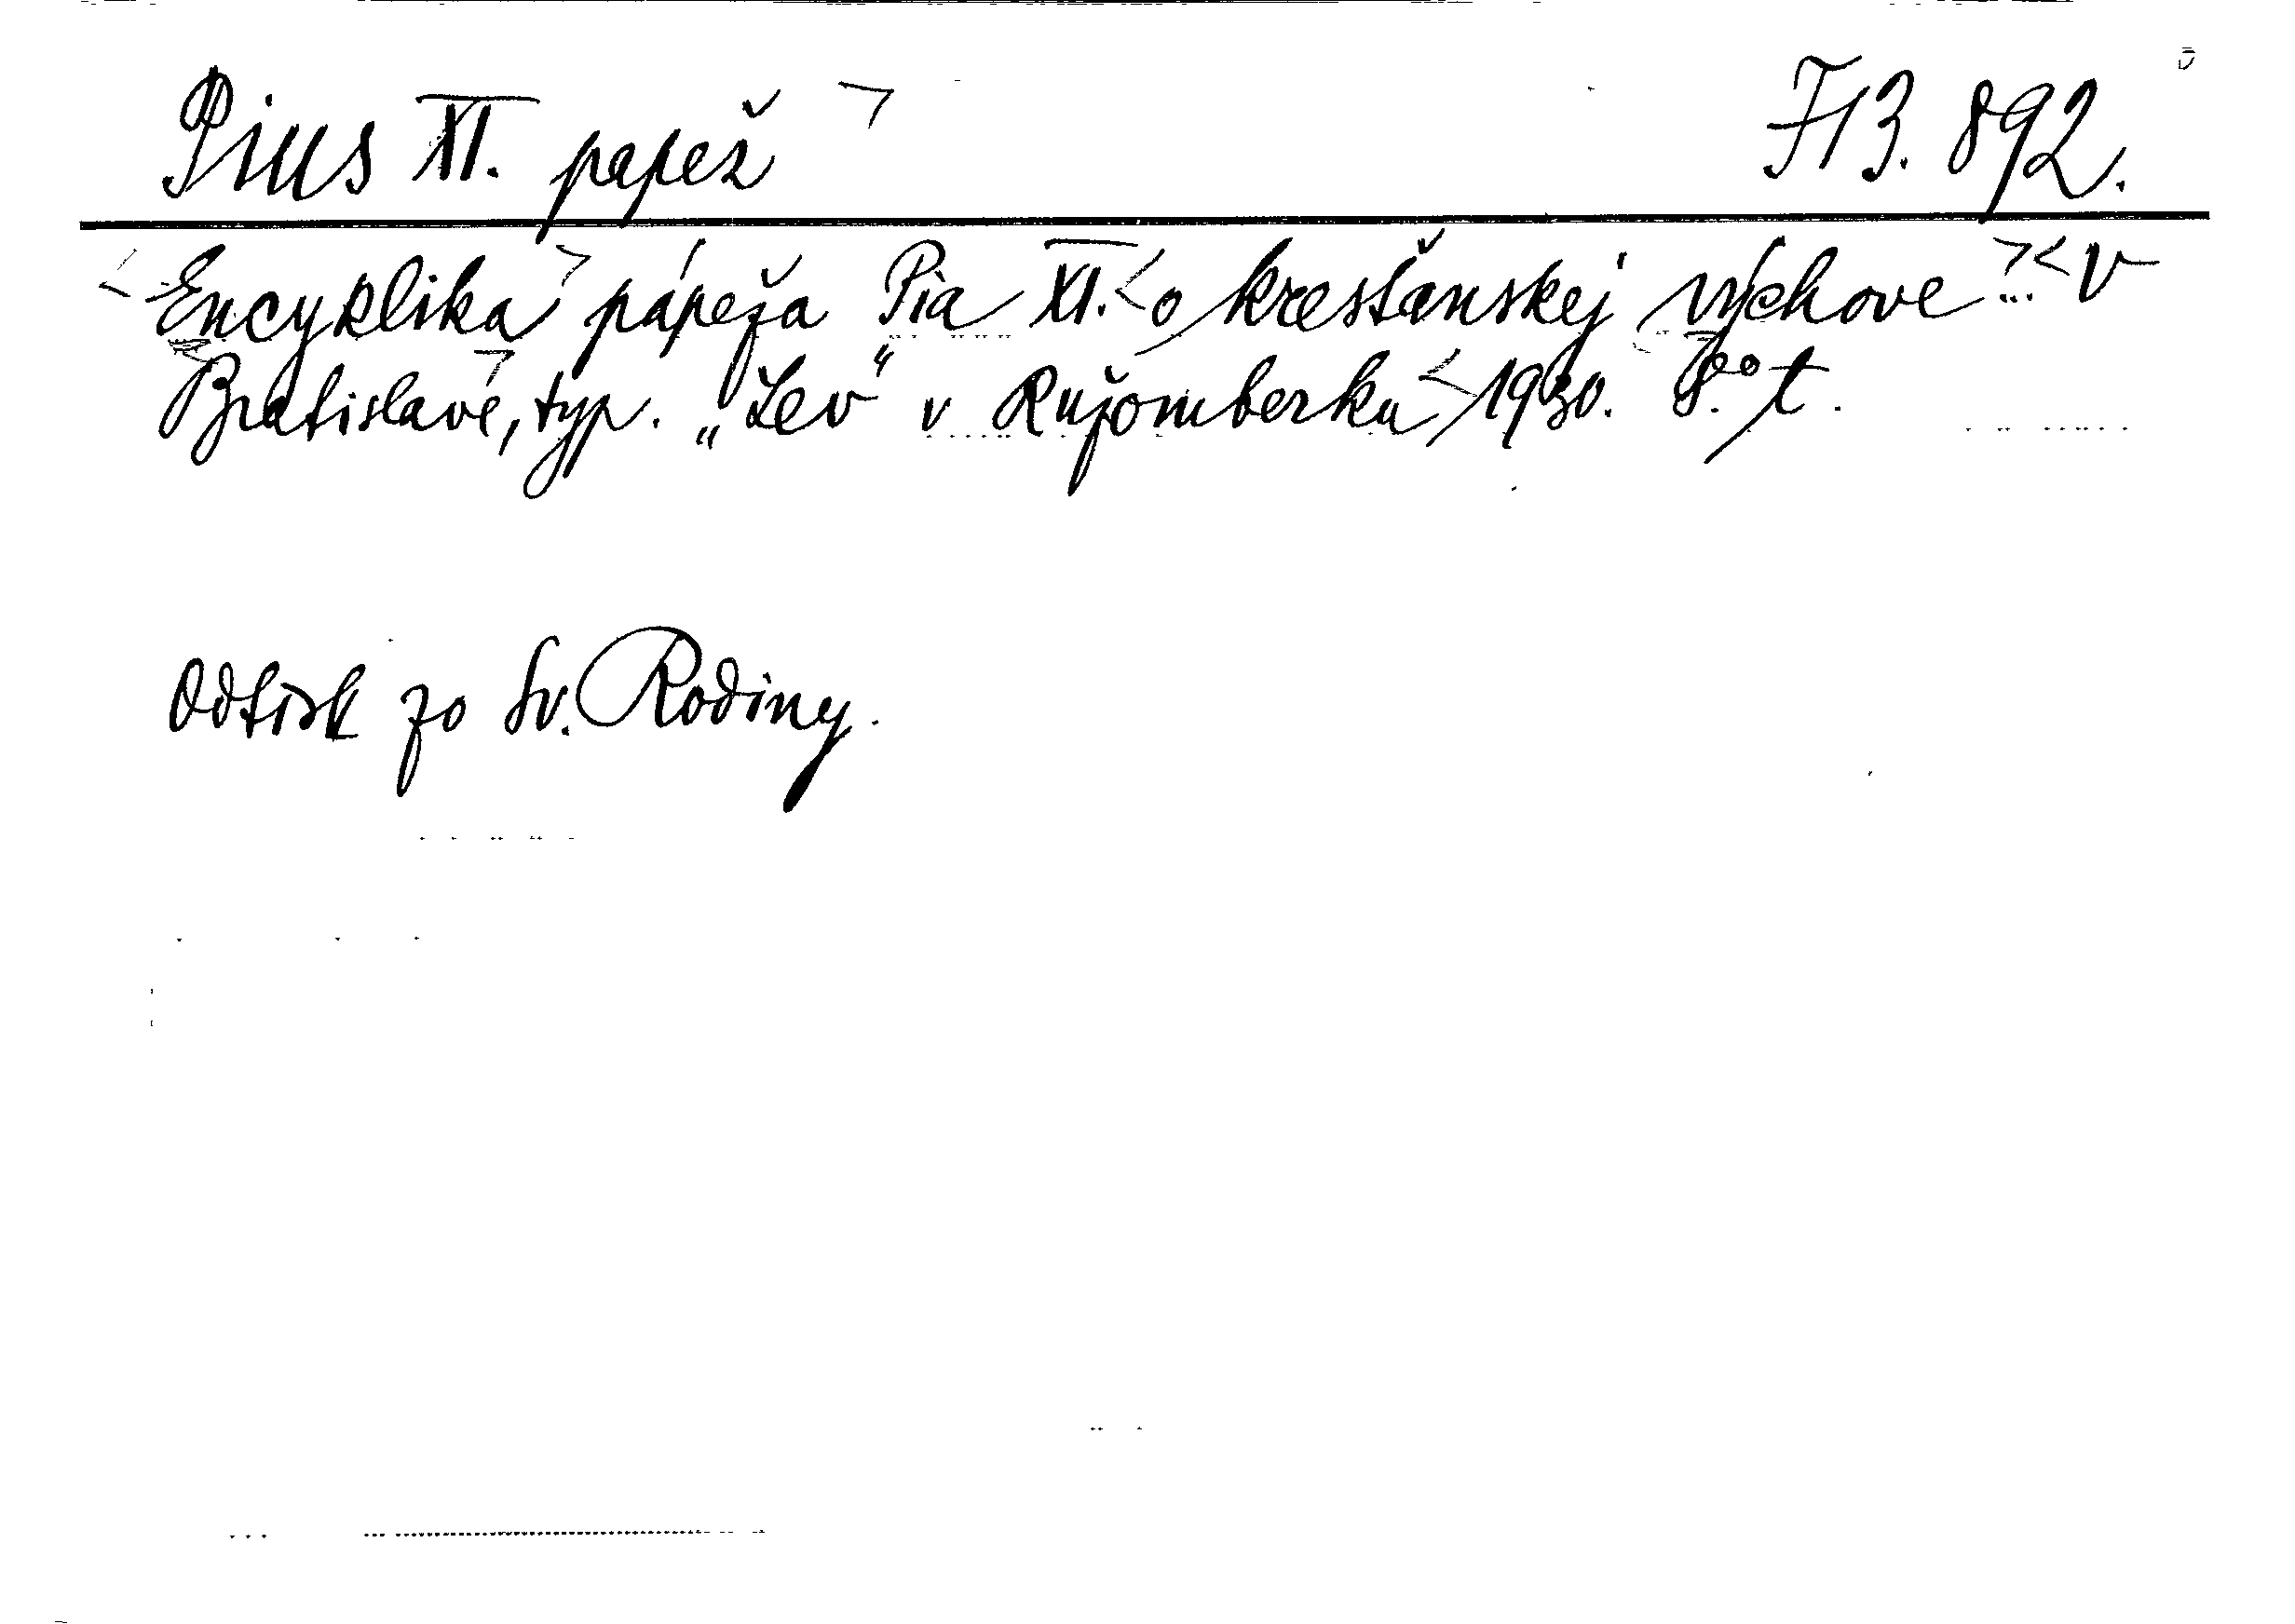 Pius XI. papež ⁊ F 13. 892.
< Encyklika > pápeža Pia XI. < o kresťanskej výchove ... > < V
Bratislavě, > typ. „Lev“ v Ružomberku < 1930. 8.° t.
Odtisk zo Sv. Rodiny.